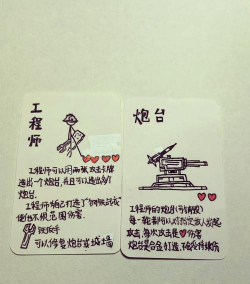 工程师
工程师可以用两张攻击卡牌
造出一个炮台,并且可以造出多个
炮台.
工程师自己打造了"钢铁战衣"
使他不被范围伤害
钣手
可以修复炮台或城墙
炮台
工程师的炮台(可销毁)
每一轮都可以对指定敌人发起
攻击,每次攻击是伤害
炮台是合金打造,不受持续伤